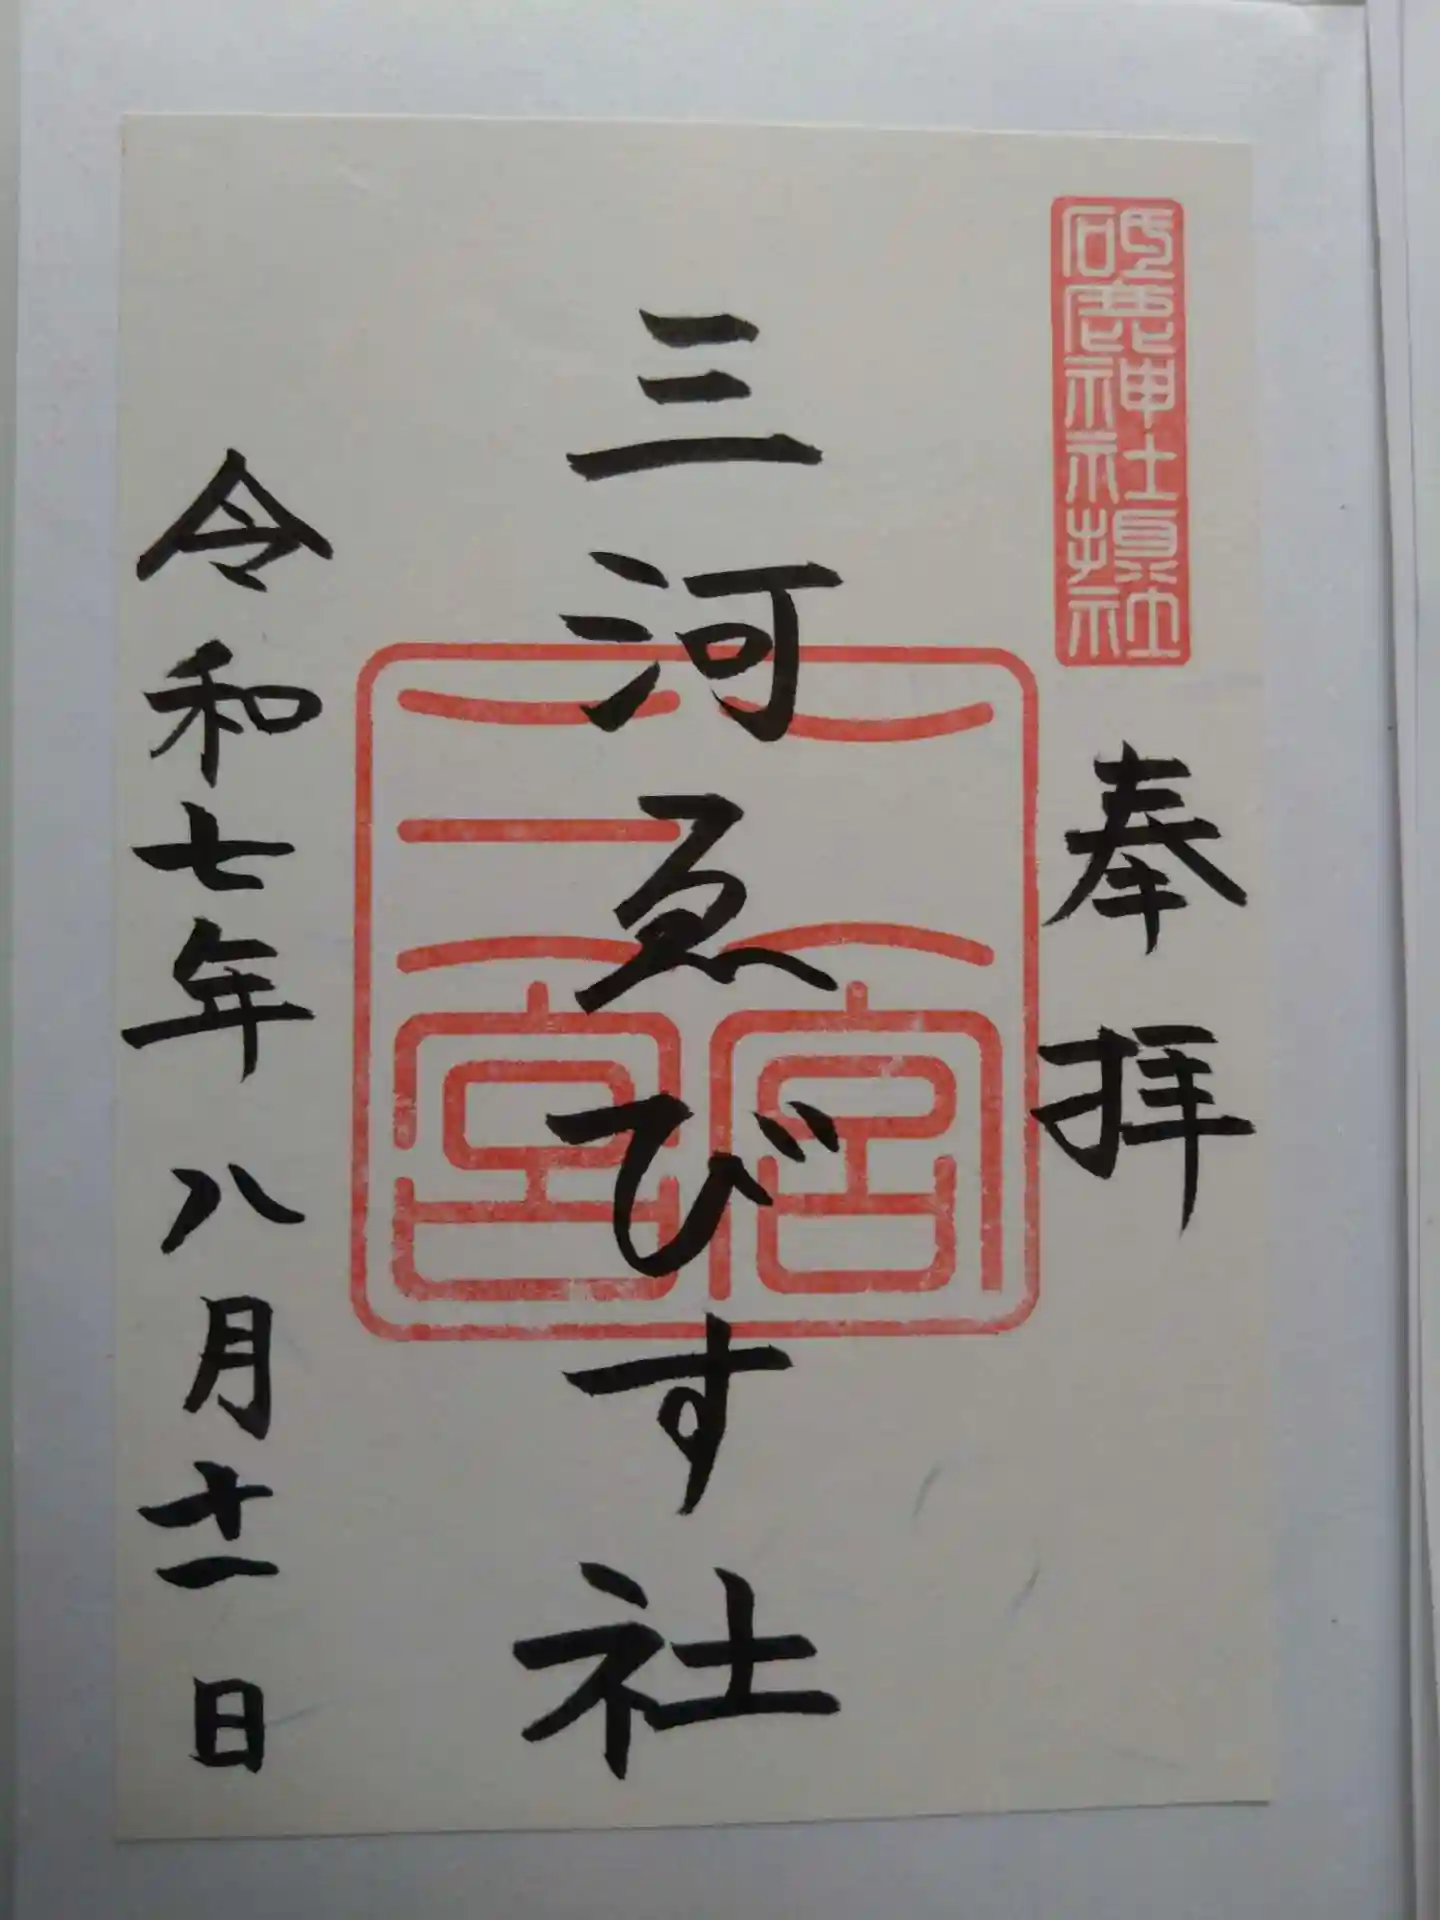 砥鹿神社境内社
奉拝
三河ゑびす社
二宮
三宮
令和七年八月十一日